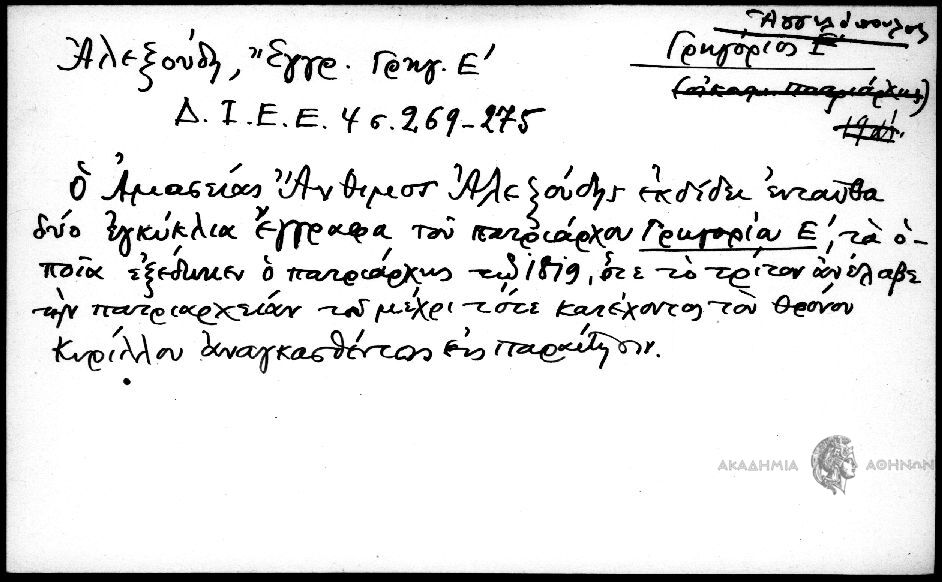 Ἀγγελόπουλος
Γρηγόριος Ε΄
(οἰκουμ. πατριάρχης)
1921.
Ἀλεξούδη, Ἔγγρ. Γρηγ. Ε΄
Δ. Ι. Ε. Ε. 4 σ. 269-275
Ὁ Ἀμασείας Ἄνθιμος Ἀλεξούδης ἐκδίδει ἐνταῦθα
δύο ἐγκύκλια ἔγγραφα τοῦ πατριάρχου Γρηγορίου Ε΄, τὰ ὁ-
ποῖα ἐξέδωκεν ὁ πατριάρχης τῷ 1819, ὅτε τὸ τρίτον ἀνέλαβε
τὴν πατριαρχείαν τοῦ μέχρι τότε κατέχοντος τὸν θρόνον
Κυρίλλου ἀναγκασθέντος εἰς παραίτησιν.
ΑΚΑΔΗΜΙΑ ΑΘΗΝΩΝ